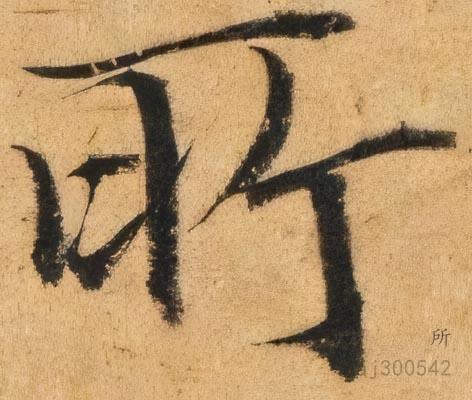 所
所
j300542